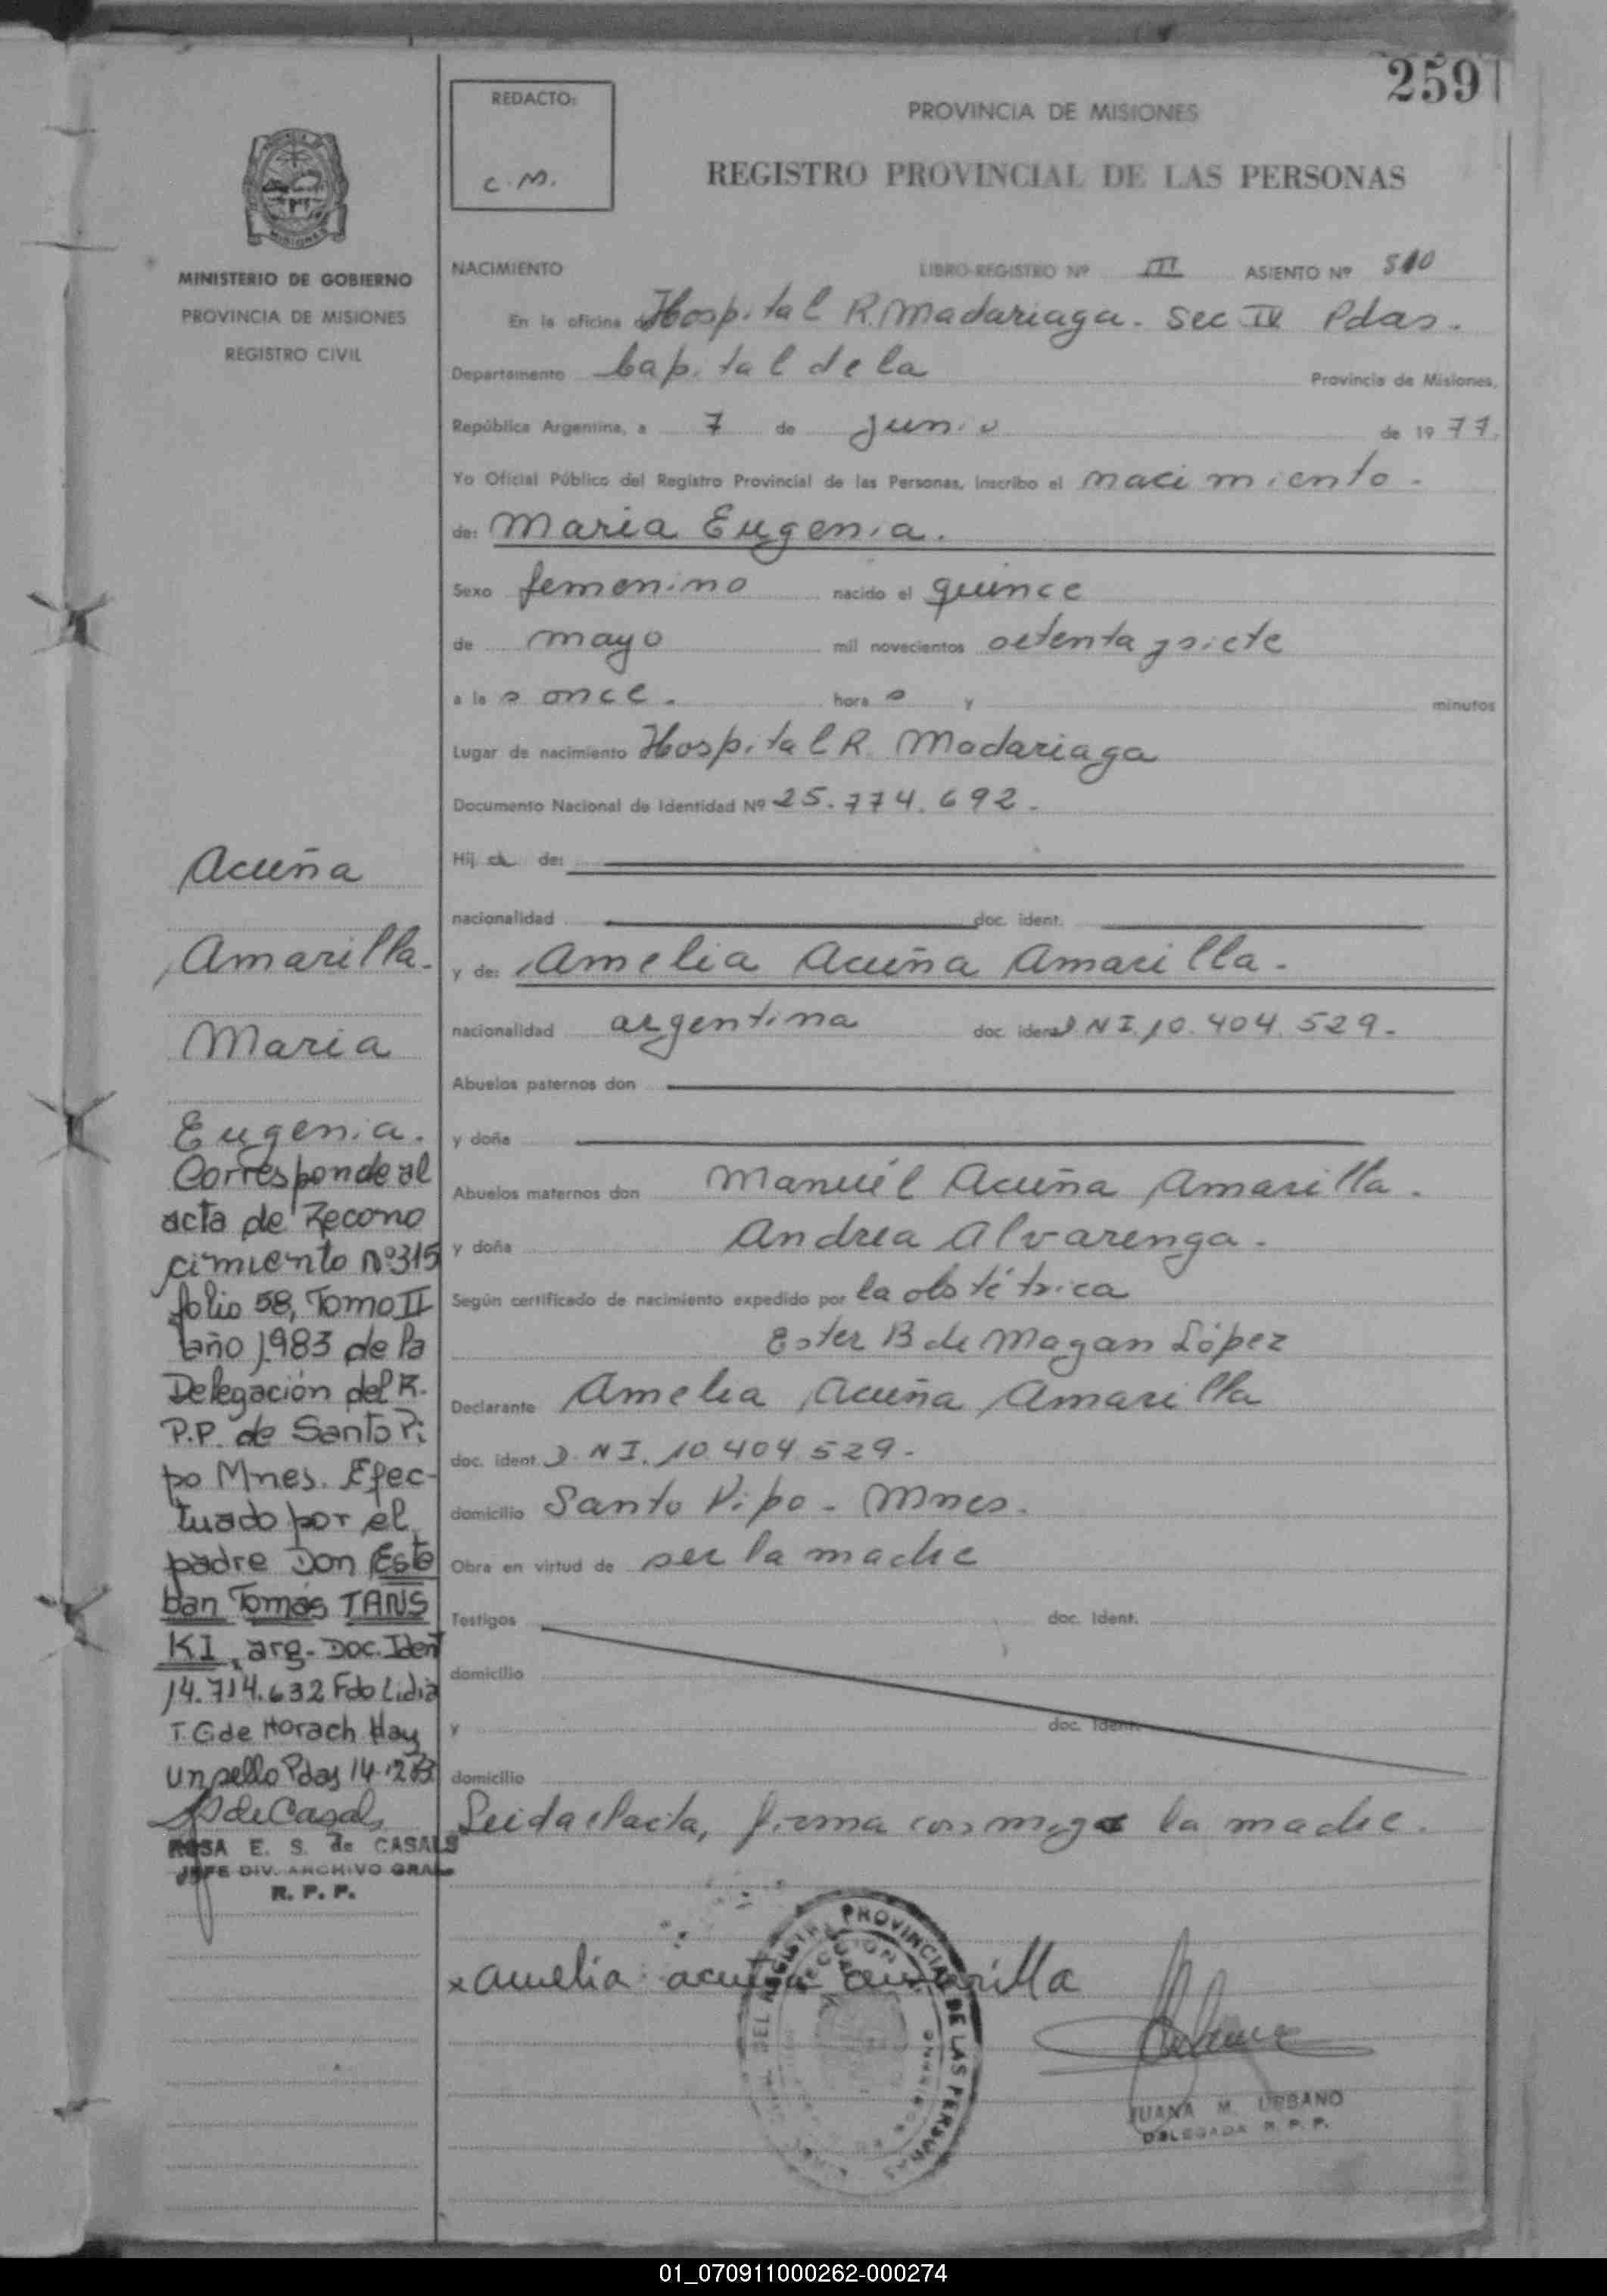 259
REDACTO:
C. M.
PROVINCIA DE MISIONES
REGISTRO PROVINCIAL DE LAS PERSONAS
MINISTERIO DE GOBIERNO
PROVINCIA DE MISIONES
REGISTRO CIVIL
NACIMIENTO LIBRO-REGISTRO Nº III ASIENTO Nº 510
En la oficina de Hospital R. Madariaga. Sec IV Pdas.
Departamento Capital de la Provincia de Misiones,
República Argentina, a 7 de Junio de 1977.
Yo Oficial Público del Registro Provincial de las Personas, inscribo el nacimiento.
de: Maria Eugenia.
Sexo femenino nacido el quince
de mayo mil novecientos setenta y siete
a las once. horas y minutos
Lugar de nacimiento Hospital R. Madariaga
Documento Nacional de Identidad Nº 25.774.692.
Hija de:
nacionalidad doc. ident.
y de: Amelia Acuña Amarilla.
nacionalidad argentina doc. ident D N I. 10.404.529.
Abuelos paternos don
y doña
Abuelos maternos don Manuel Acuña Amarilla.
y doña Andrea Alvarenga.
Según certificado de nacimiento expedido por la obstétrica
Ester B de Magan López
Declarante Amelia Acuña Amarilla
doc. ident D. N I. 10.404.529.
domicilio Santo Pipo - Mnes.
Obra en virtud de ser la madre
Testigos doc. Ident.
domicilio
y doc. Ident.
domicilio
Leida el acta, firma conmigo la madre.
x amelia acuña amarilla
JUANA M. URBANO
DELEGADA R. P. P.
Acuña
Amarilla.
Maria
Eugenia.
Corresponde al
acta de Recono
cimiento Nº315
folio 58, Tomo II
año 1983 de la
Delegación del R.
P.P. de Santo Pi
po Mnes. Efec-
tuado por el
padre Don Este
ban Tomás TANS
KI, arg- Doc. Ident
14.714.632 Fdo Lidia
T. G de Horach Hay
un sello Pdas 14-12-83
ROSA E. S. de CASALS
JEFE DIV. ARCHIVO GRAL
R. P. P.
PROVINCIAL DE LAS PERSONAS
01_070911000262-000274